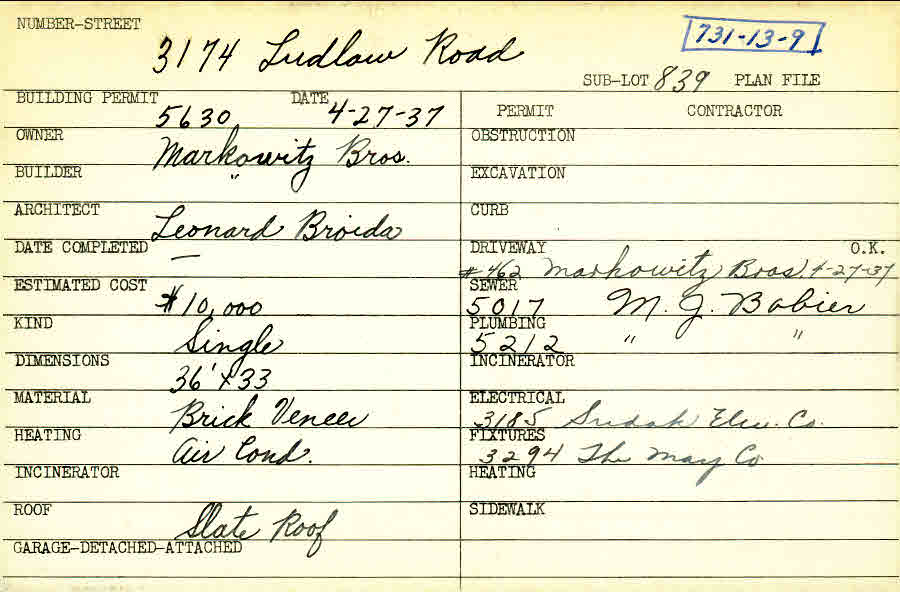 NUMBER-STREET
3174 Ludlow Road
731-13-9
SUB-LOT 839 PLAN FILE
BUILDING PERMIT 5630 DATE 4-27-37
OWNER Markowitz Bros.
BUILDER "
ARCHITECT Leonard Broida
DATE COMPLETED —
ESTIMATED COST $10,000
KIND Single
DIMENSIONS 36' x 33
MATERIAL Brick Veneer
HEATING Air Cond.
INCINERATOR
ROOF Slate Roof
GARAGE-DETACHED-ATTACHED
PERMIT CONTRACTOR
OBSTRUCTION
EXCAVATION
CURB
DRIVEWAY O.K.
#462 Markowitz Bros. 4-27-37
SEWER
5017 M. J. Babier
PLUMBING
5212 " "
INCINERATOR
ELECTRICAL
3185 Elec. Co.
FIXTURES
3294 The May Co
HEATING
SIDEWALK